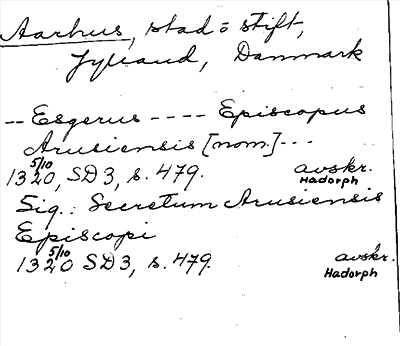 Aarhus, stad o stift,
Jylland, Danmark
-- Esgerus ---- Episcopus
Arusiensis [nom.] ---
1320 5/10, SD 3, s. 479. avskr. Hadorph
Sig.: Secretum Arusiensis
Episcopi
1320 5/10 SD 3, s. 479. avskr. Hadorph